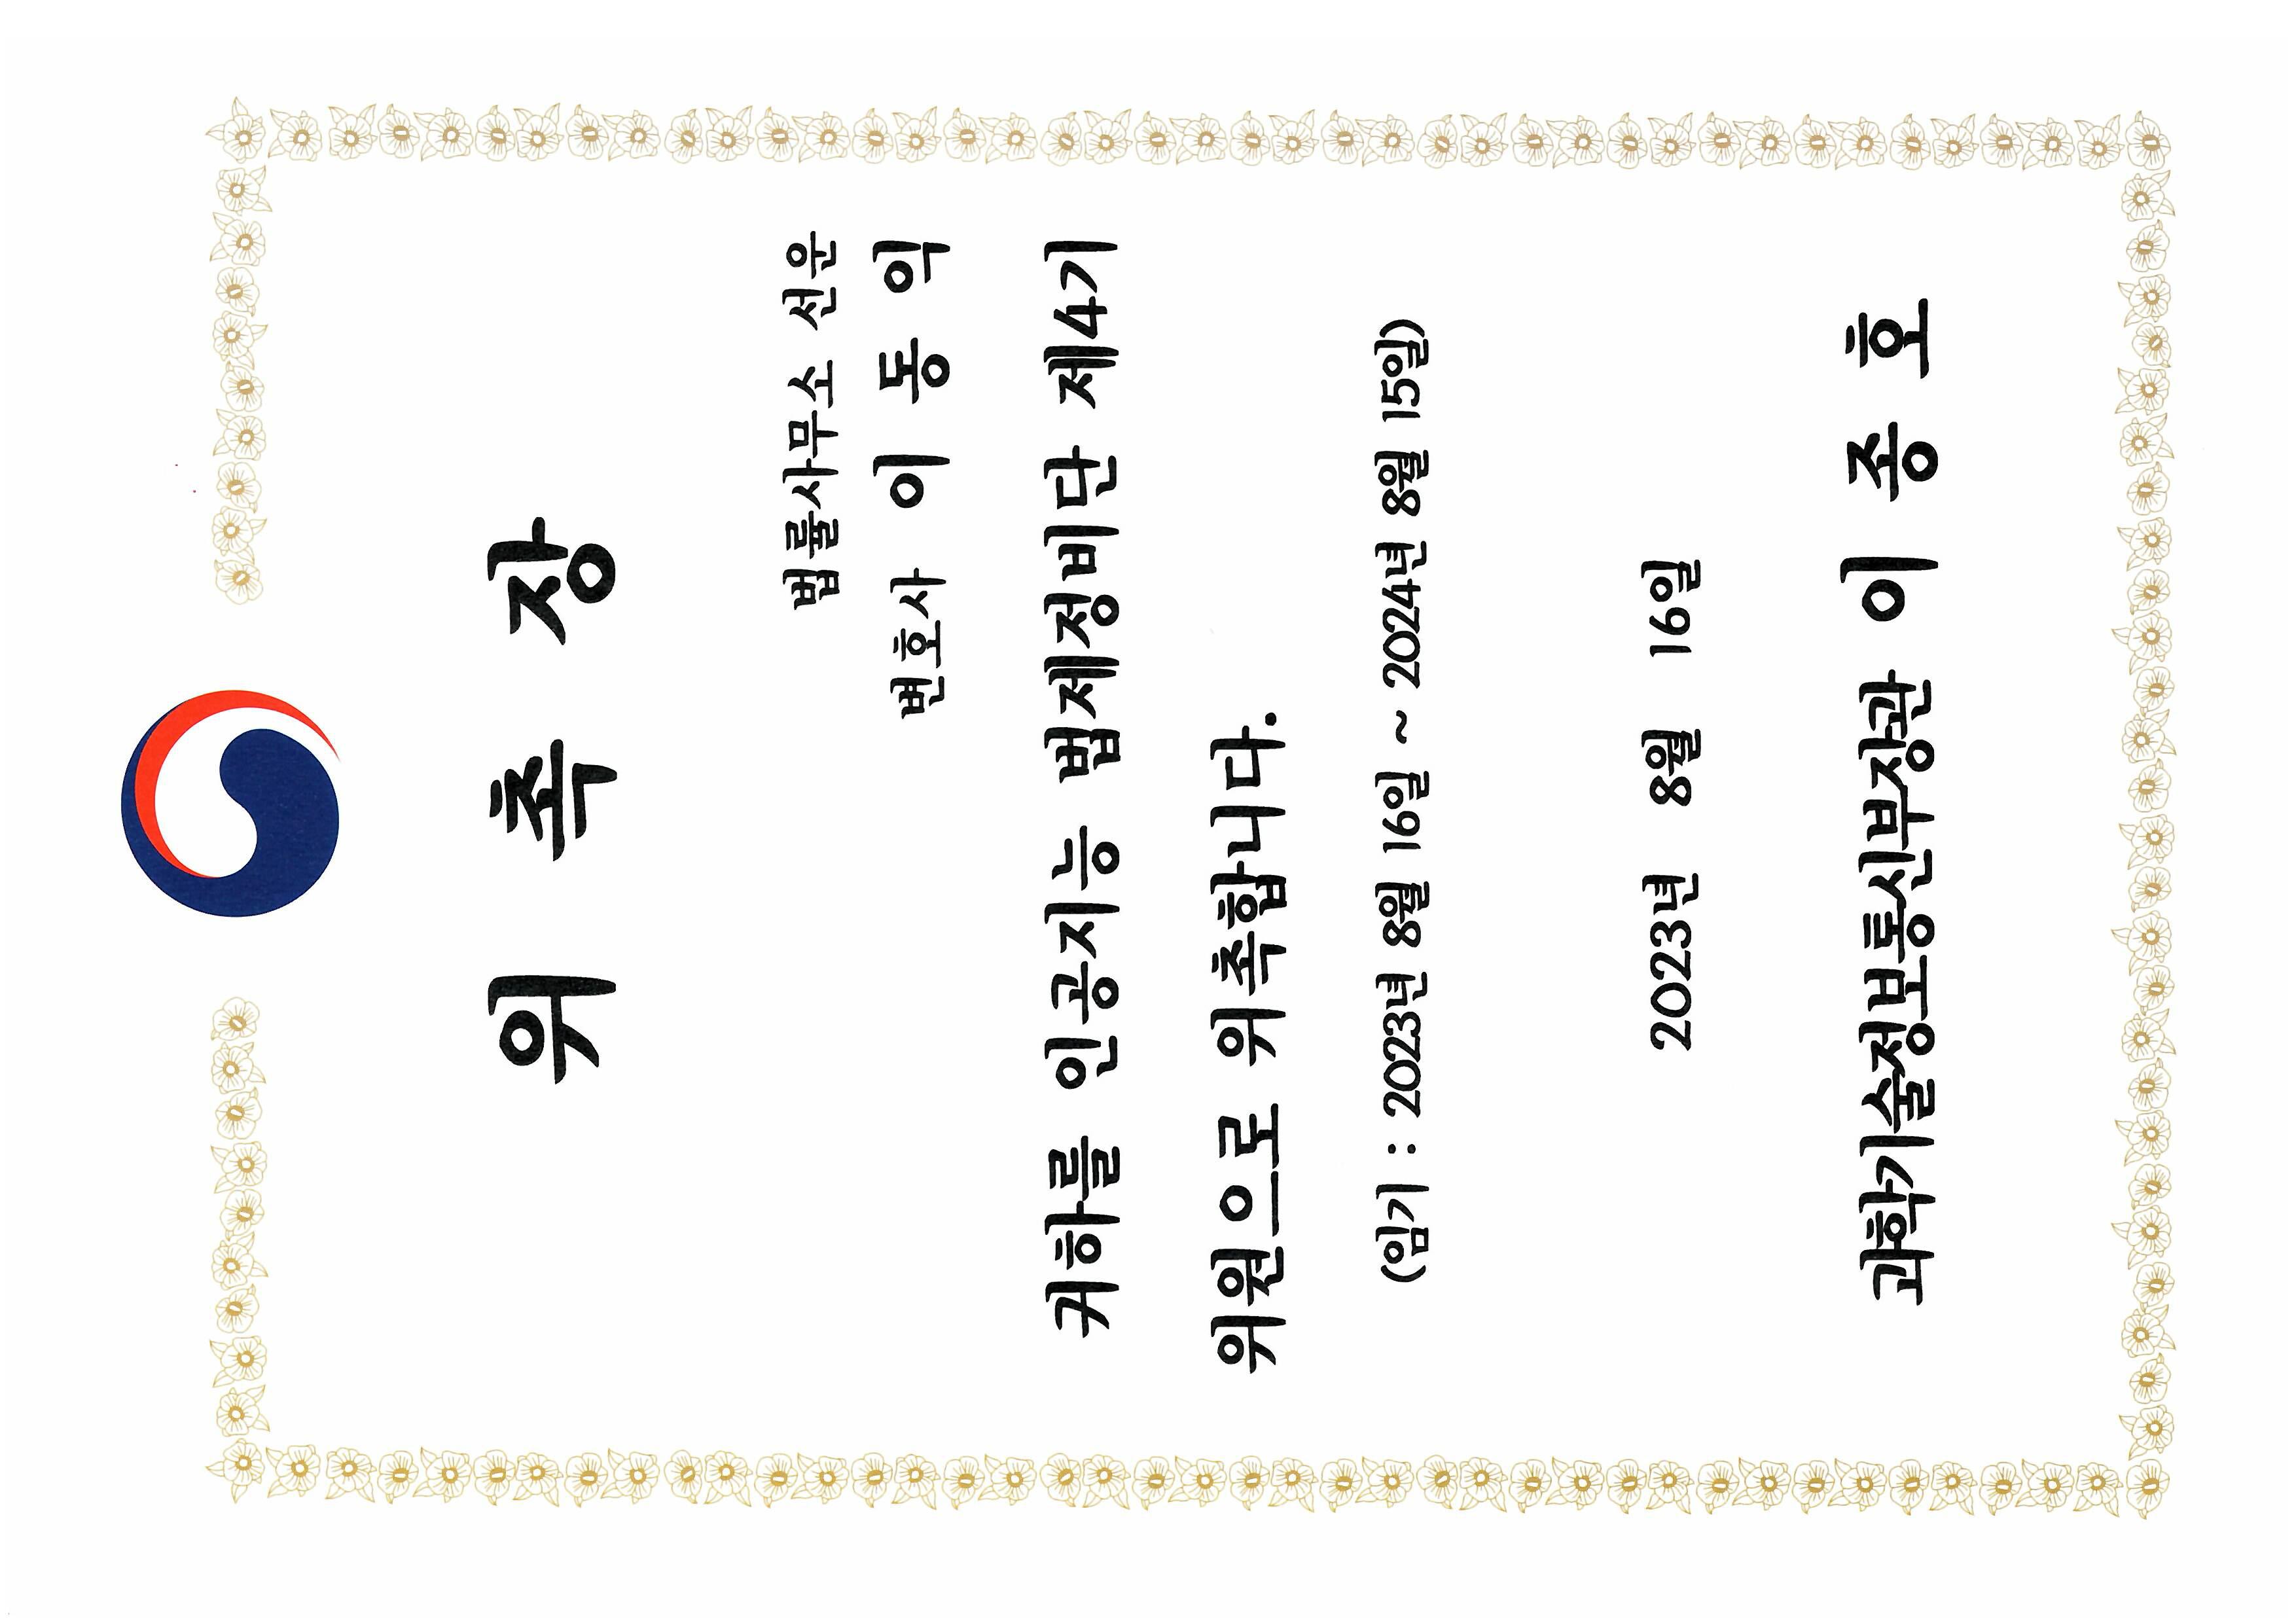 위 촉 장
법률사무소 선운
변호사 이 동 익
귀하를 인공지능 법제정비단 제4기
위원으로 위촉합니다.
(임기 : 2023년 8월 16일 ~ 2024년 8월 15일)
2023년 8월 16일
과학기술정보통신부장관 이 종 호